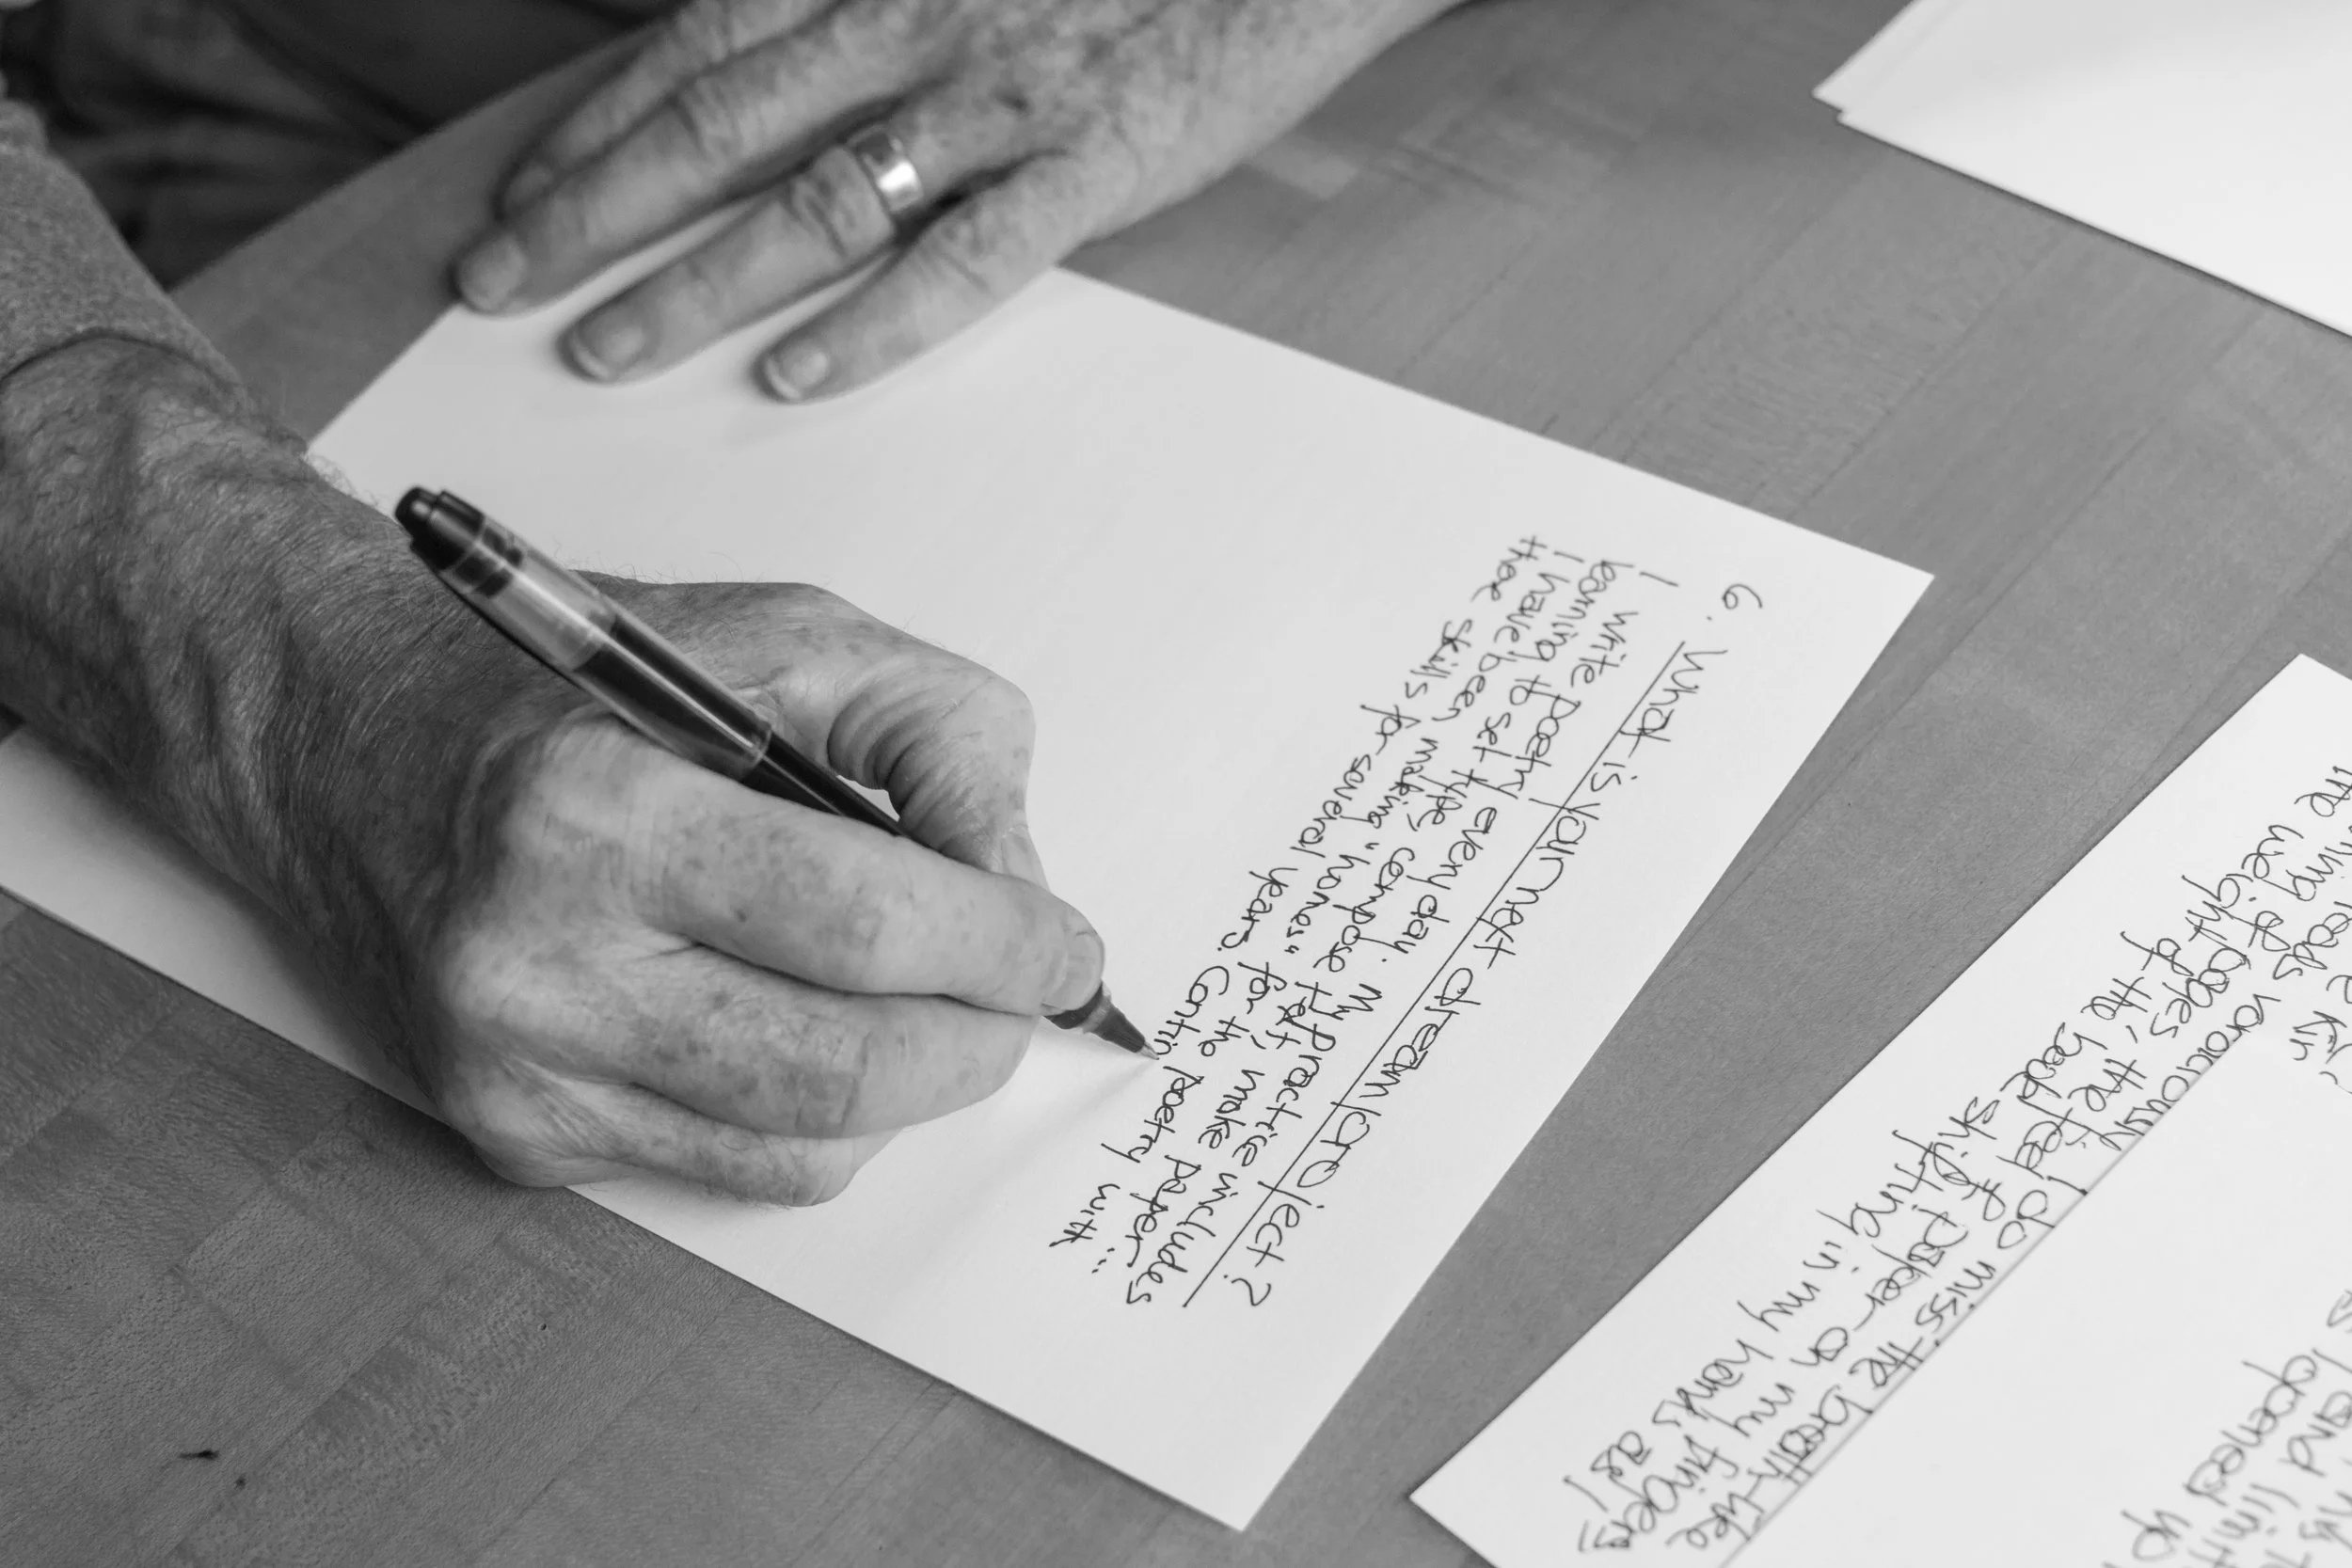 6. What is your next dream/project?
I write poetry every day. My practice includes
learning to set type, compose text, make paper...
I have been making "homes" for the poetry with
these skills for several years. Contin
reads voraciously I do miss the breath-like
pages, the feel of paper on my fingers,
the weight of the book shifting in my hands as I
and
opened up